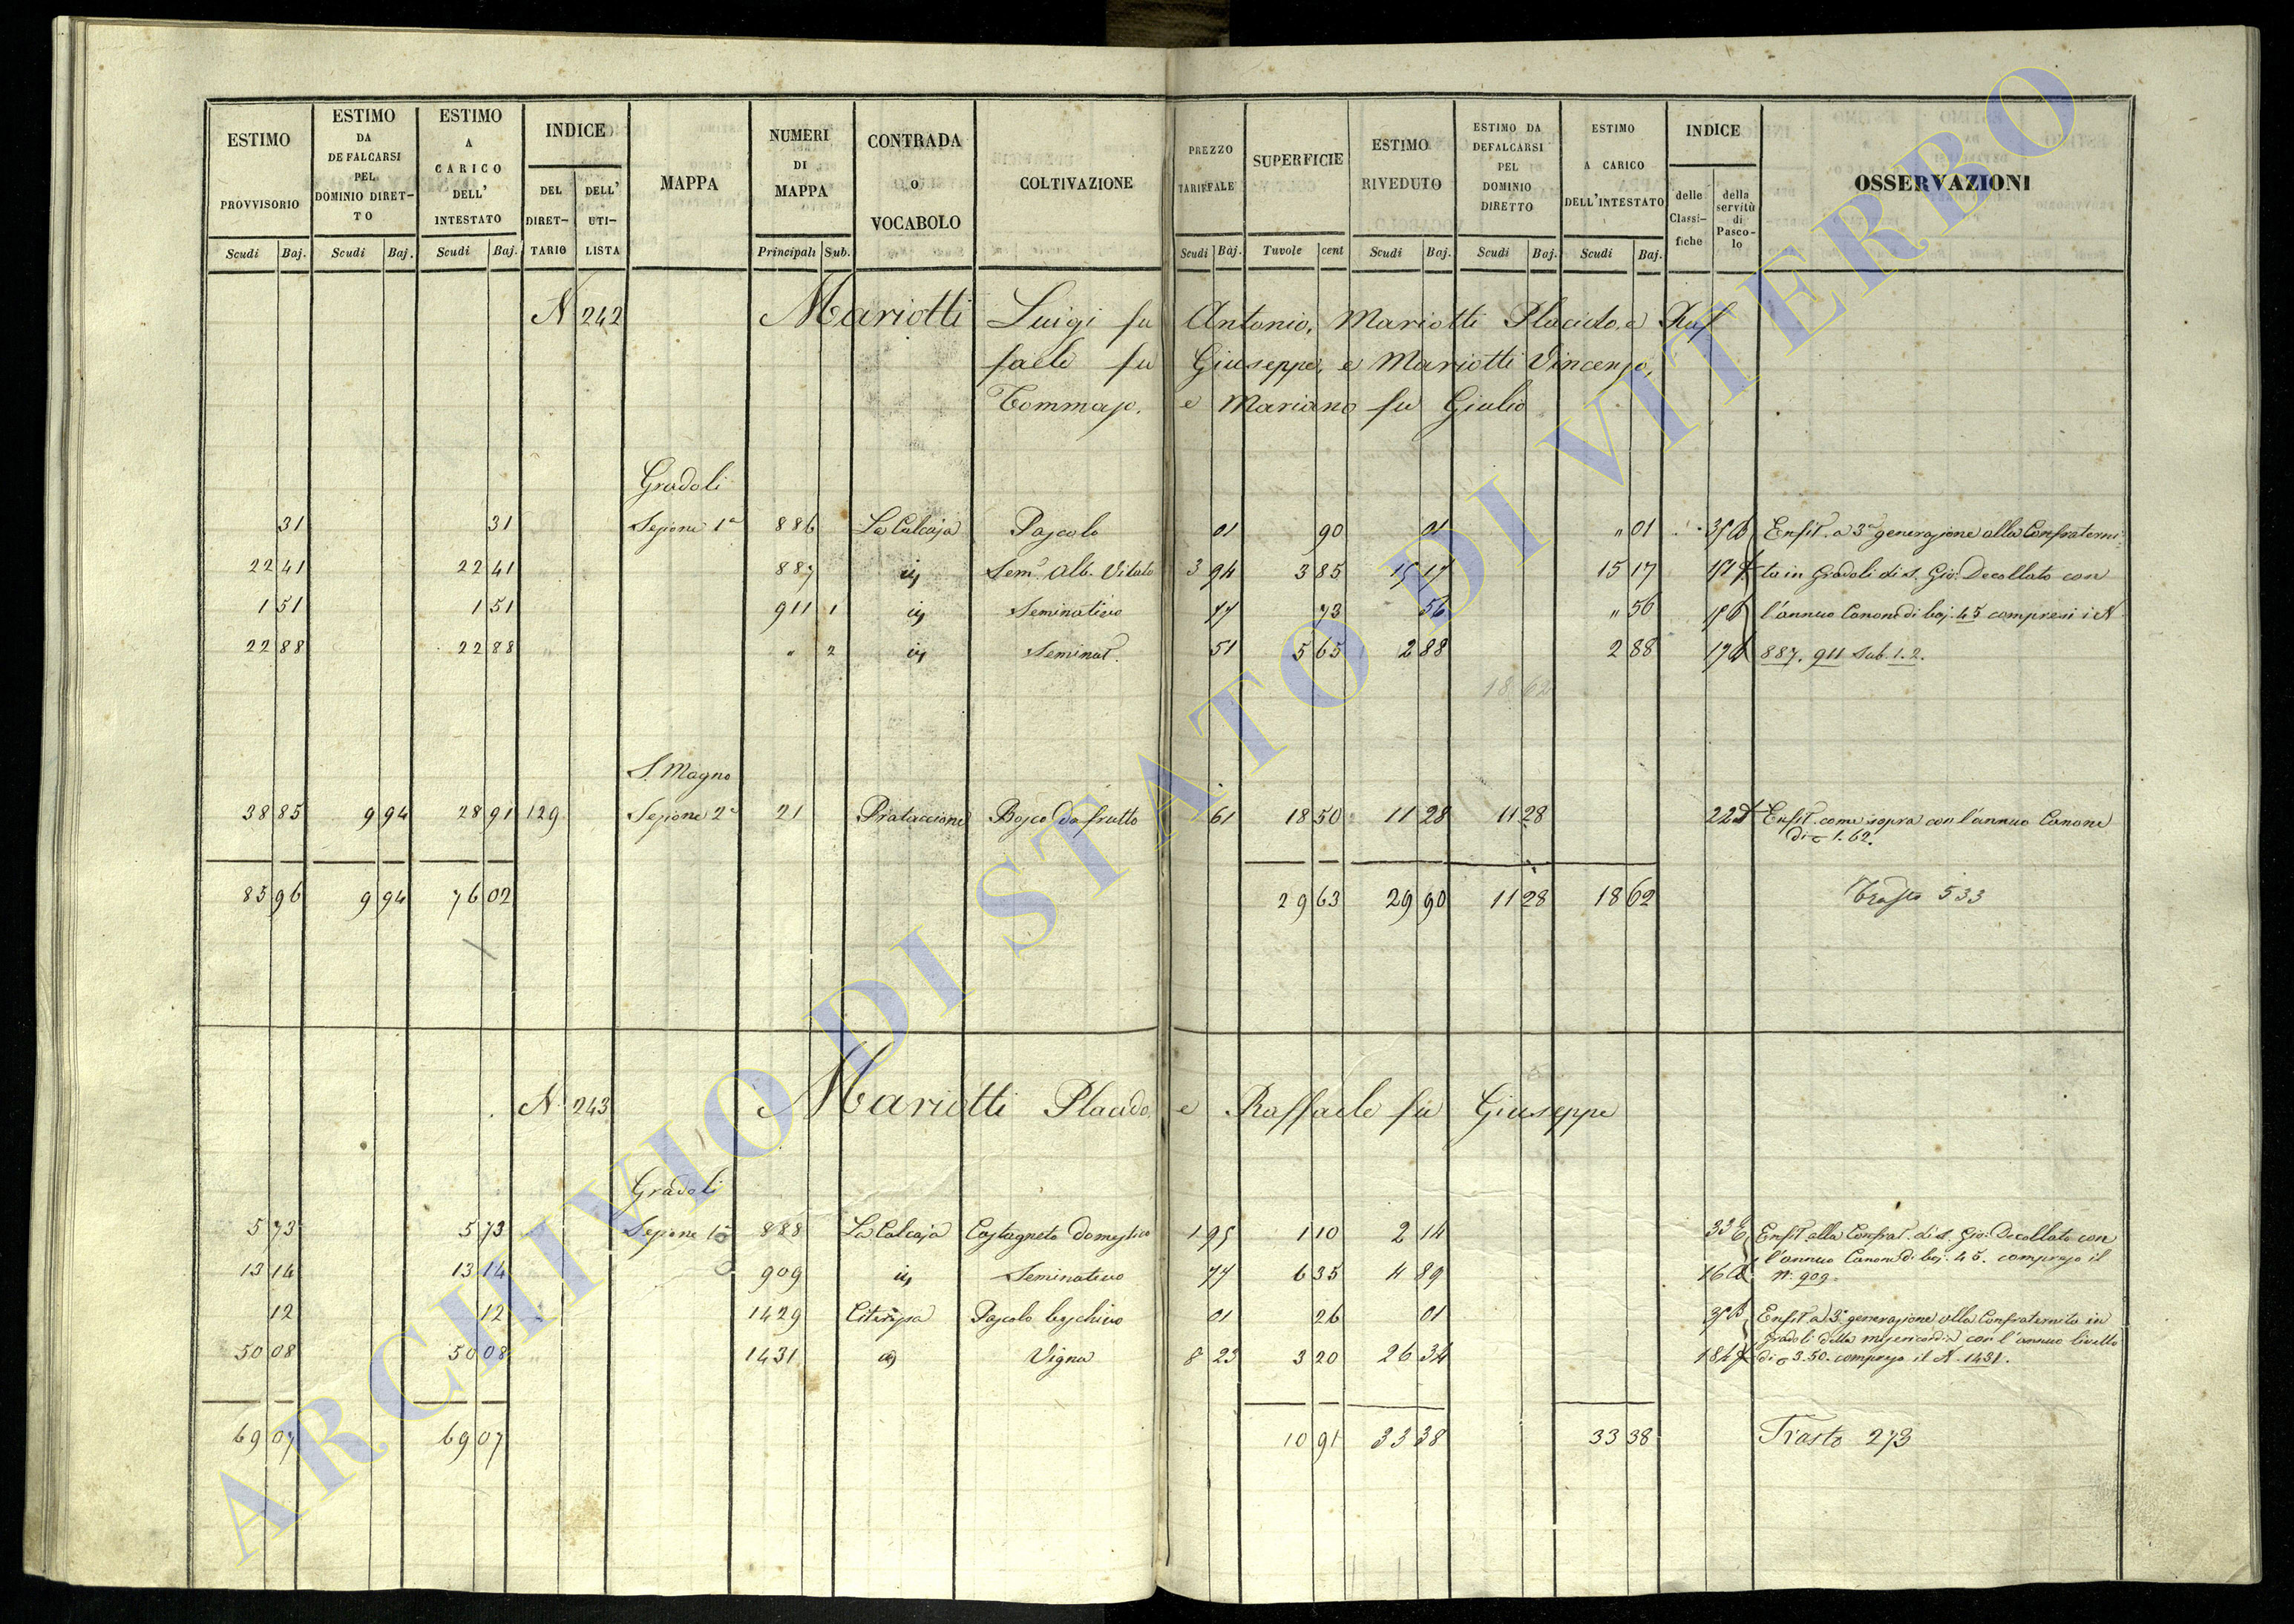 ESTIMO PROVVISORIO Scudi Baj.
ESTIMO DA DEFALCARSI PEL DOMINIO DIRETTO Scudi Baj.
ESTIMO A CARICO DELL' INTESTATO Scudi Baj.
INDICE DEL DIRETTARIO DELL' UTILISTA
MAPPA
NUMERI DI MAPPA Principali Sub.
CONTRADA o VOCABOLO
COLTIVAZIONE
PREZZO TARIFFALE Scudi Baj.
SUPERFICIE Tavole cent
ESTIMO RIVEDUTO Scudi Baj.
ESTIMO DA DEFALCARSI PEL DOMINIO DIRETTO Scudi Baj.
ESTIMO A CARICO DELL'INTESTATO Scudi Baj.
INDICE delle Classifiche della servitù di Pascolo
OSSERVAZIONI
N 242 Mariotti Luigi fu Antonio, Mariotti Placido, e Raf
faele fu Giuseppe, e Mariotti Vincenzo,
Tommaso, e Mariano fu Giulio
Gradoli
31 31 Sezione 1a 886 La Calcaja Pascolo 01 90 01 " 01 Enfit. a 3a generazione alla Confraterni
22 41 22 41 887 Sem. Alb. Vitato 3 94 3 85 15 17 15 17 ta in Gradoli di S. Gio: Decollato con
1 51 1 51 911 1 Seminativo 77 73 56 " 56 l'annuo Canone di baj. 45 compresi i N
22 88 22 88 " 2 Seminat. 51 5 65 2 88 2 88 887. 911 Sub. 1. 2.
18 62
S. Magno
38 85 9 94 28 91 129 Sezione 2a 21 Prataccione Bosco da frutto 61 18 50 11 28 11 28 22 Enfit. come sopra con l'annuo Canone
di 1.62.
85 96 9 94 76 02 29 63 29 90 11 28 18 62 Trasto 533
N. 243 Mariotti Placido, e Raffaele fu Giuseppe
Gradoli
5 73 5 73 Sezione 1a 888 La Calcaja Castagneto domestico 1 95 1 10 2 14 33 Enfit. alla Confrat. di S. Gio: Decollato con
l'annuo Canone di baj. 45. compreso il
13 14 13 14 909 Seminativo 77 6 35 4 89 16 N. 909.
12 12 1429 Pascolo 01 26 01 Enfit. a 3a generazione alla Confraternita in
Gradoli della misericordia con l'annuo livello
50 08 50 08 1431 Vigna 8 23 3 20 26 34 18 di 3.50. compreso il N. 1431.
69 07 69 07 10 91 33 38 33 38 Trasto 273
ARCHIVIO DI STATO DI VITERBO